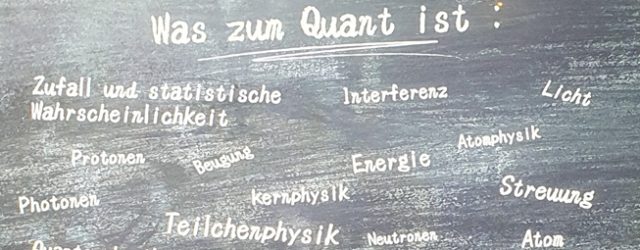 Was zum Quant ist :
Zufall und statistische
Wahrscheinlichkeit
Interferenz
Licht
Atomphysik
Protonen
Beugung
Energie
Photonen
Kernphysik
Streuung
Teilchenphysik
Neutronen
Atom